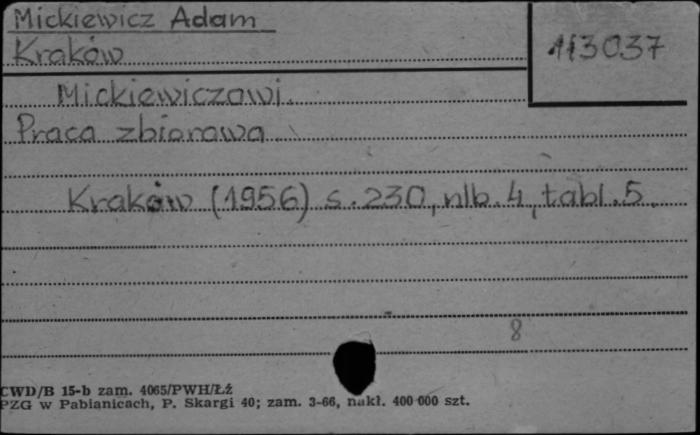 Mickiewicz Adam
Kraków
113037
Mickiewiczowi.
Praca zbiorowa
Kraków (1956) s. 230, nlb. 4, tabl. 5.
8
CWD/B 15-b zam. 4065/PWH/ŁŻ
PZG w Pabianicach, P. Skargi 40; zam. 3-66, nakł. 400 000 szt.